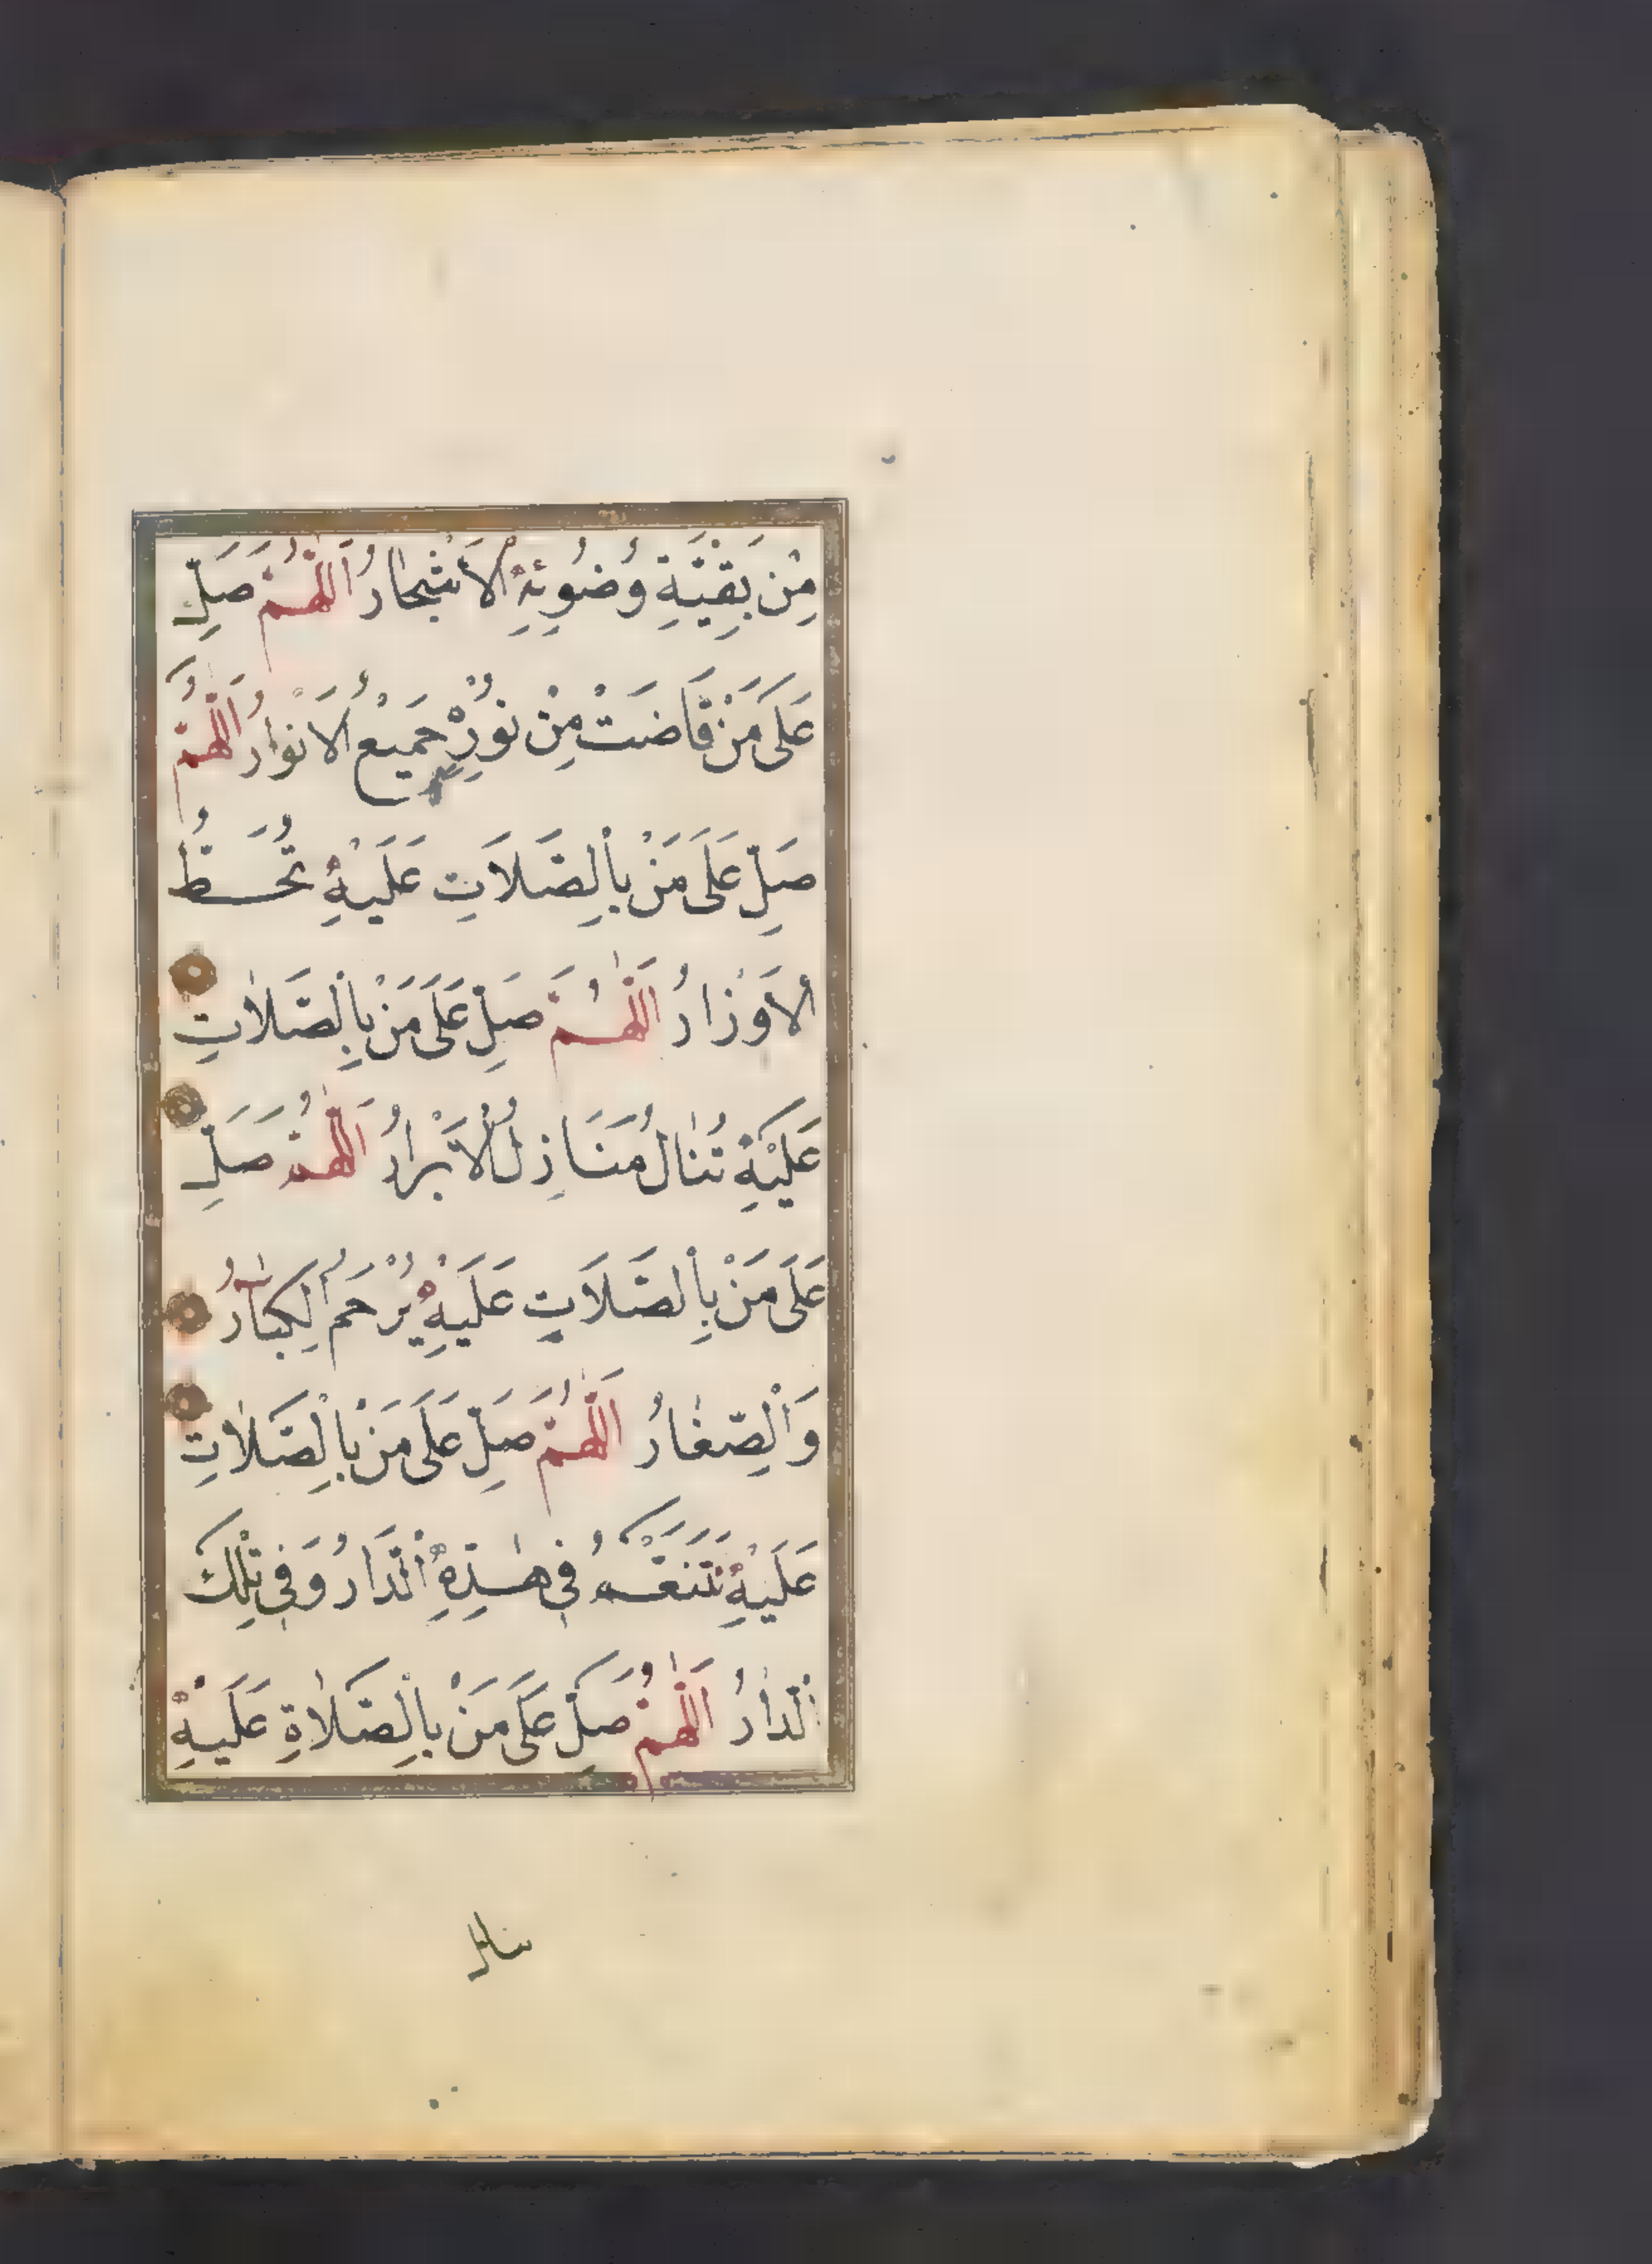 مِنْ بَقِيَّةِ وُضُوئِهِ الْأَشْجَارُ اَللّٰهُمَّ صَلِّ
عَلَى مَنْ فَاضَتْ مِنْ نُورِهِ جَمِيعُ الْأَنْوَارُ اَللّٰهُمَّ
صَلِّ عَلَى مَنْ بِالصَّلَاتِ عَلَيْهِ تُحَطُّ
الْأَوْزَارُ اَللّٰهُمَّ صَلِّ عَلَى مَنْ بِالصَّلَاتِ
عَلَيْهِ تُنَالُ مَنَازِلُ الْأَبْرَارُ اَللّٰهُمَّ صَلِّ
عَلَى مَنْ بِالصَّلَاتِ عَلَيْهِ يُرْحَمُ الْكِبَارُ
وَالصِّغَارُ اَللّٰهُمَّ صَلِّ عَلَى مَنْ بِالصَّلَاتِ
عَلَيْهِ نَتَنَعَّمُ فِي هٰذِهِ الدَّارُ وَفِي تِلْكَ
الدَّارُ اَللّٰهُمَّ صَلِّ عَلَى مَنْ بِالصَّلَاةِ عَلَيْهِ